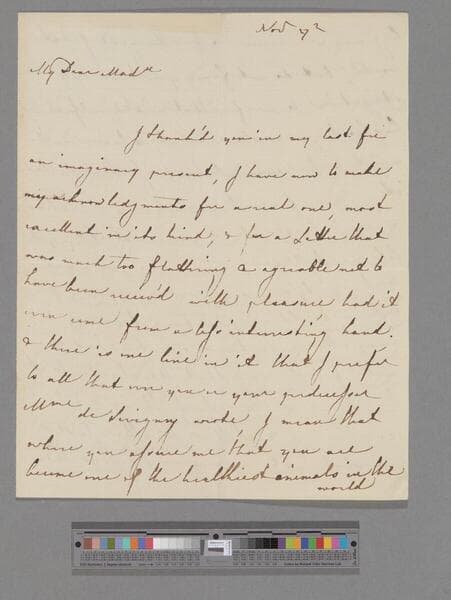 Nov^r 7^th
My Dear Mad^m
I thank'd you in my last for
an imaginary present, I have now to make
my acknowledgments for a real one, most
excellent in its kind, & for a Letter that
was much too flattering & agreable not to
have been receiv'd with pleasure had it
even come from a less interesting hand.
& there is one line in it that I prefer
to all that ever you or your predecessor
Mme de Sivigny wrote, I mean that
where you assure me that you are
become one of the healthiest animals in the
world